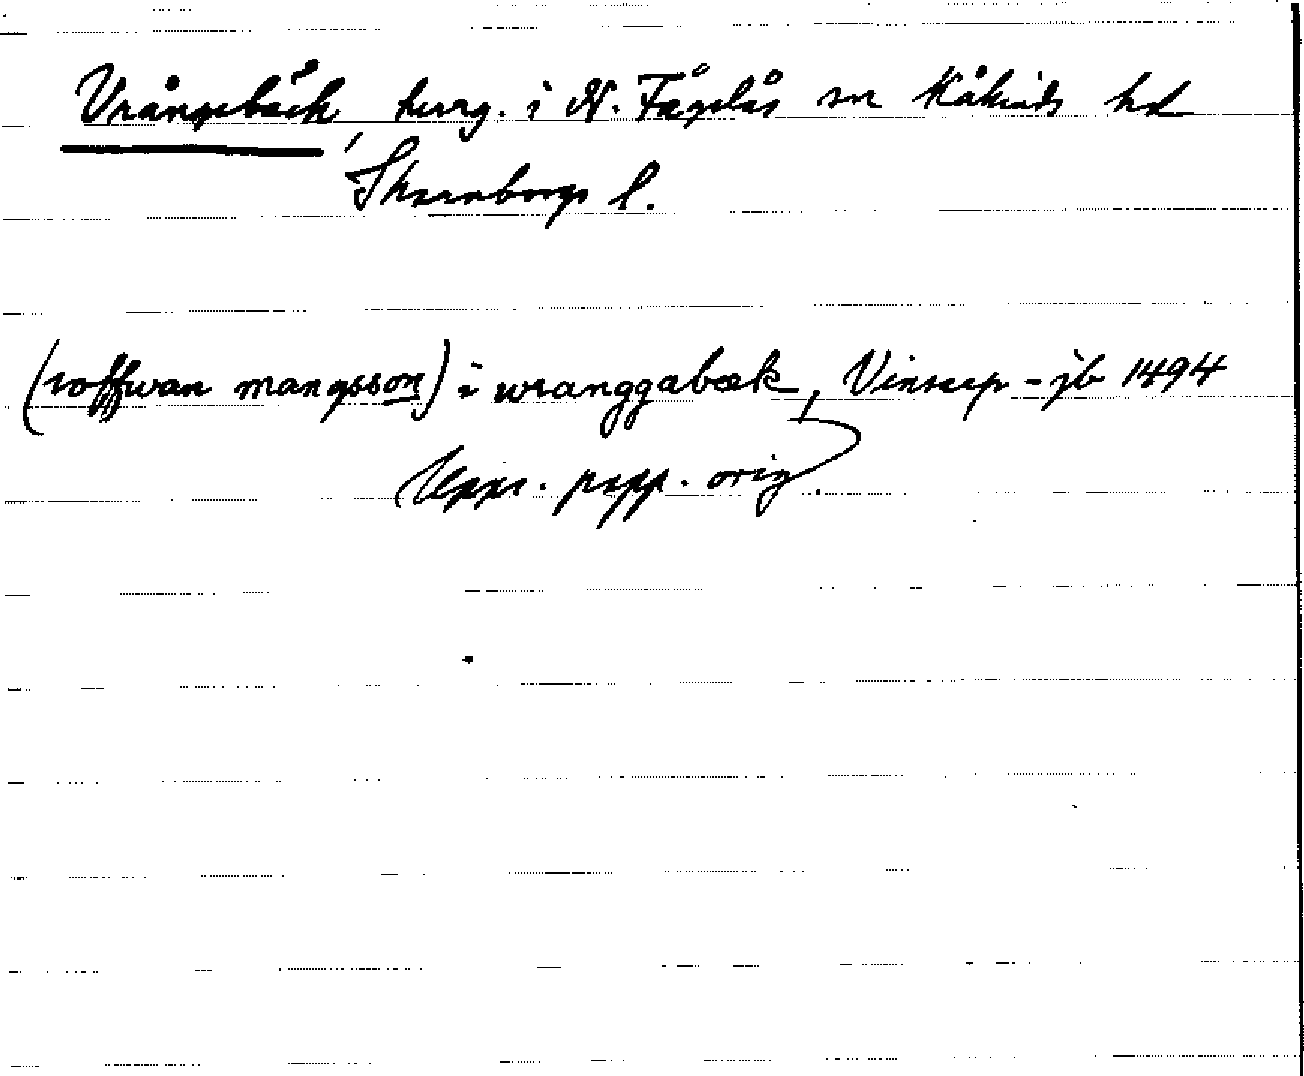 Vrångebäck, herrg. i N. Fågelås sn Kåkinds hd
Skaraborgs l.
(roffwan mangsson) i wranggabæk, Vinsarp-jb 1494
Upps. papp. orig.